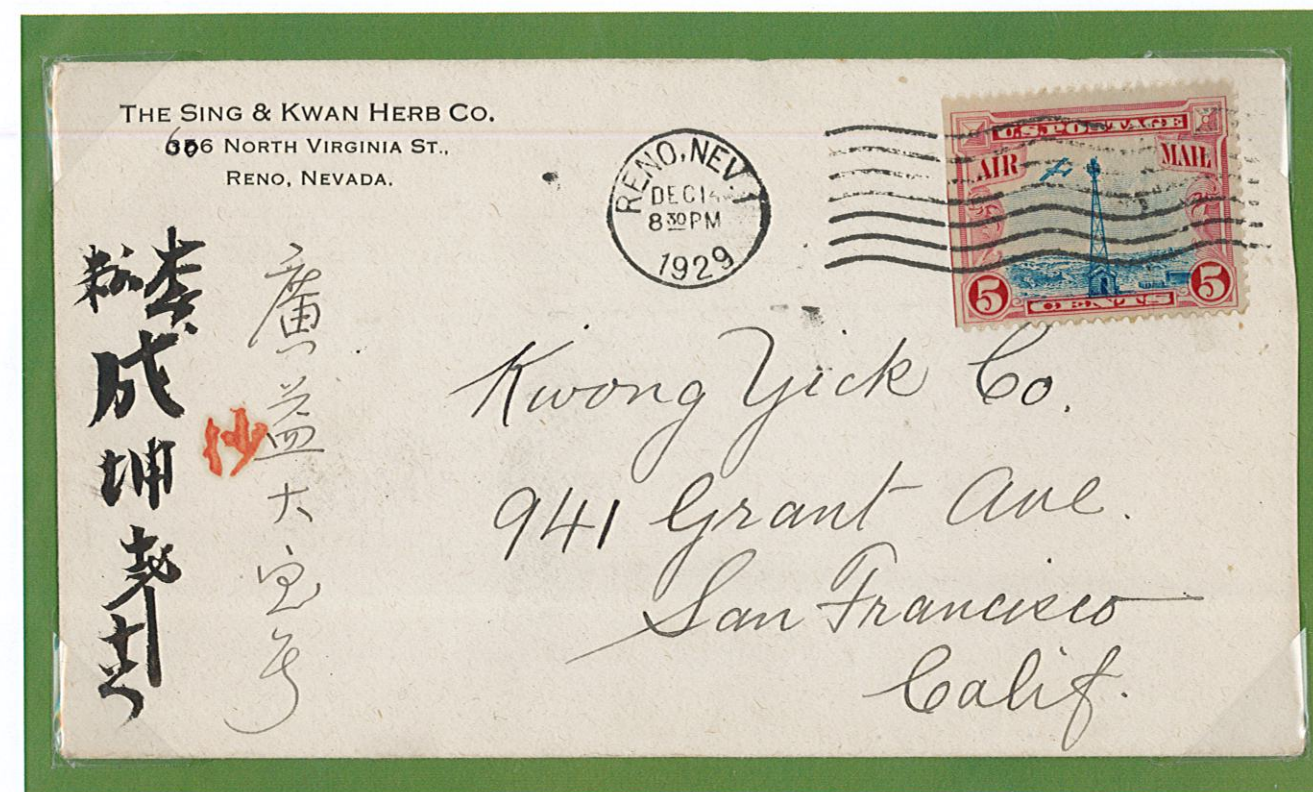 THE SING & KWAN HERB CO.
606 NORTH VIRGINIA ST.,
RENO, NEVADA.
RENO, NEV. 1
DEC 14
8 30 PM
1929
U.S. POSTAGE
AIR MAIL
5 CENTS 5
Kwong Yick Co.
941 Grant Ave.
San Francisco
Calif.
廣益大宝号
抄
李成坤